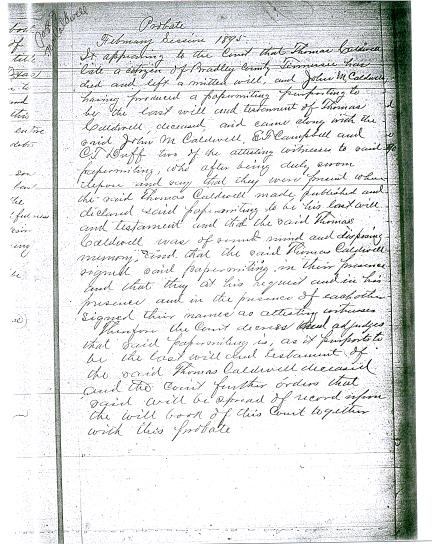 Probate
February Session 1895
It appearing to the Court that Thomas Caldwell
late a citizen of Bradley County Tennessee has
died and left a written will, and John M Caldwell
having produced a paperwriting purporting to
be the last will and testament of Thomas
Caldwell, deceased, and came along with the
said John M Caldwell, E T Campbell and
C T Duff two of the attesting witnesses to said
paperwriting, who after being duly sworn
depose and say that they were present when
the said Thomas Caldwell made published and
declared said paperwriting to be his last will
and testament and that the said Thomas
Caldwell was of sound mind and disposing
memory, and that the said Thomas Caldwell
signed said paperwriting in their presence
and that they at his request and in his
presence and in the presence of each other
signed their names as attesting witnesses
Therefore the Court decrees and adjudges
that said paperwriting is, as it purports to
be the last will and testament of
the said Thomas Caldwell deceased
and the Court further orders that
said will be spread of record upon
the will book of this Court together
with this probate